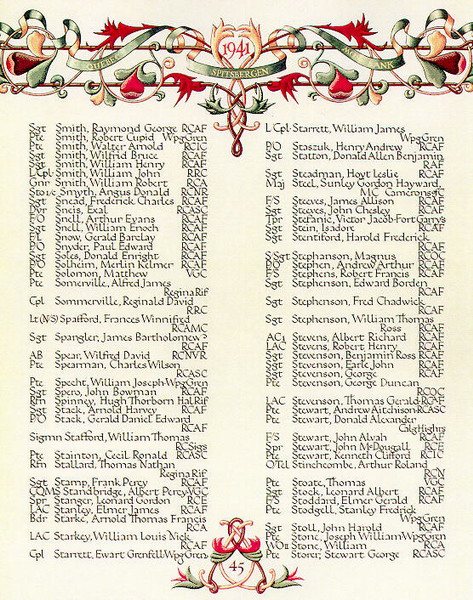 1941
QUEBEC
SPITSBERGEN
MILK BANK
Sgt Smith, Raymond George RCAF
Pte Smith, Robert Cupid WpgGren
Pte Smith, Walter Arnold RCIC
Sgt Smith, Wilfrid Bruce RCAF
Sgt Smith, William Henry RCAF
L/Cpl Smith, William John RRC
Gnr Smith, William Robert RCA
Smyth, Angus Donald RCNR
Sgt Snead, Frederick Charles RCAF
Dvr Sneis, Exal RCASC
F/O Snell, Arthur Evans RCAF
Sgt Snell, William Enoch RCAF
FL Snow, Gerald Barclay RCAF
P/O Snyder, Paul Edward RCAF
Sgt Soles, Donald Enright RCAF
P/O Solheim, Merlin Kelmer RCAF
Pte Solomon, Matthew VGC
Pte Somerville, Alfred James
ReginaRif
Cpl Sommerville, Reginald David
RRC
Lt (N/S) Spafford, Frances Winnifred
RCAMC
Sgt Spangler, James Bartholomew
RCAF
AB Spear, Wilfred David RCNVR
Pte Spearman, Charles Wilson
RCASC
Pte Specht, William Joseph WpgGren
Sgt Spero, John Bowman RCAF
Rfn Spinney, Hugh Thorborn HalRif
Sgt Stack, Arnold Harvey RCAF
P/O Stack, Gerald Daniel Edward
RCAF
Sigmn Stafford, William Thomas
RCSigs
Pte Stainton, Cecil Ronald RCASC
Rfn Stallard, Thomas Nathan
ReginaRif
Sgt Stamp, Frank Percy RCAF
CQMS Standbridge, Albert Percy VGC
Spr Stanger, Leonard Gordon RCE
LAC Stanley, Elmer James RCAF
Bdr Starke, Arnold Thomas Francis
RCA
LAC Starkey, William Louis Nick
RCAF
Cpl Starrett, Ewart Grenfell WpgGren
L Cpl Starrett, William James
WpgGren
P/O Staszuk, Henry Andrew RCAF
Sgt Statton, Donald Allen Benjamin
RAF
Sgt Steadman, Hoyt Leslie RCAF
Maj Steel, Sunley Gordon Hayward,
MC CameronsofC
F/S Steeves, James Allison RCAF
Sgt Steeves, John Chesley RCAF
Tpr Stefanic, Victor Jacob FortGarrys
Sgt Stein, Isadore RCAF
Sgt Stentiford, Harold Frederick
RCAF
S/Sgt Stephanson, Magnus RCOC
P/O Stephen, Andrew Arthur RCAF
F/S Stephens, Robert Francis RCAF
Sgt Stephenson, Edward Borden
RCAF
Sgt Stephenson, Fred Chadwick
RCAF
Sgt Stephenson, William Thomas
Ross RCAF
AC1 Stevens, Albert Richard RCAF
LAC Stevens, Robert Henry RCAF
Sgt Stevenson, Benjamin Ross RCAF
Sgt Stevenson, Earle John RCAF
Sgt Stevenson, George RCAF
Pte Stevenson, George Duncan
RCOC
LAC Stevenson, Thomas Gerald RCAF
Pte Stewart, Andrew Aitchison RCASC
Pte Stewart, Donald Alexander
CalgHighrs
F/S Stewart, John Alvah RCAF
Spr Stewart, John McDougall RCE
Pte Stewart, Kenneth Clifford RCIC
O/Tel Stinchcombe, Arthur Roland
RCN
Pte Stoate, Thomas VGC
Sgt Stock, Leonard Albert RCAF
F/S Stoddard, Elmer Gerald RCAF
Pte Stodgell, Stanley Fredrick
WpgGren
Sgt Stoll, John Harold RCAF
Pte Stone, Joseph William WpgGren
WOII Stone, William RCA
Pte Storer, Stewart George RCASC
45